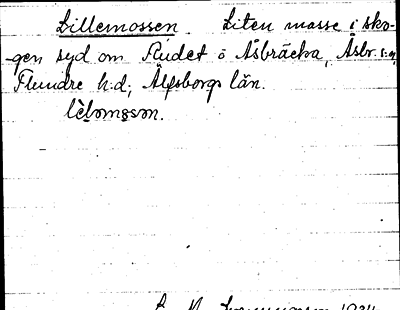 Lillemossen. Liten mosse i sko-
-gen syd om Rudet ö Åsbräcka, Åsbr. s:n,
Flundre h.d; Älfsborgs län.
1934